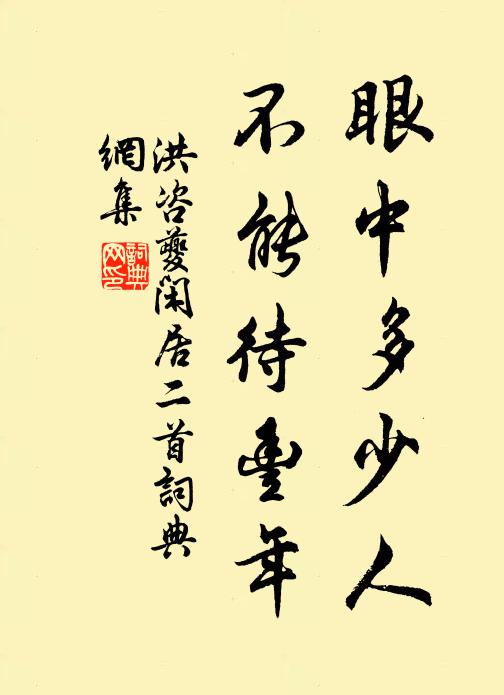 眼中多少人
不能待豐年
洪咨夔閑居二首詞典
網集
詞典網印